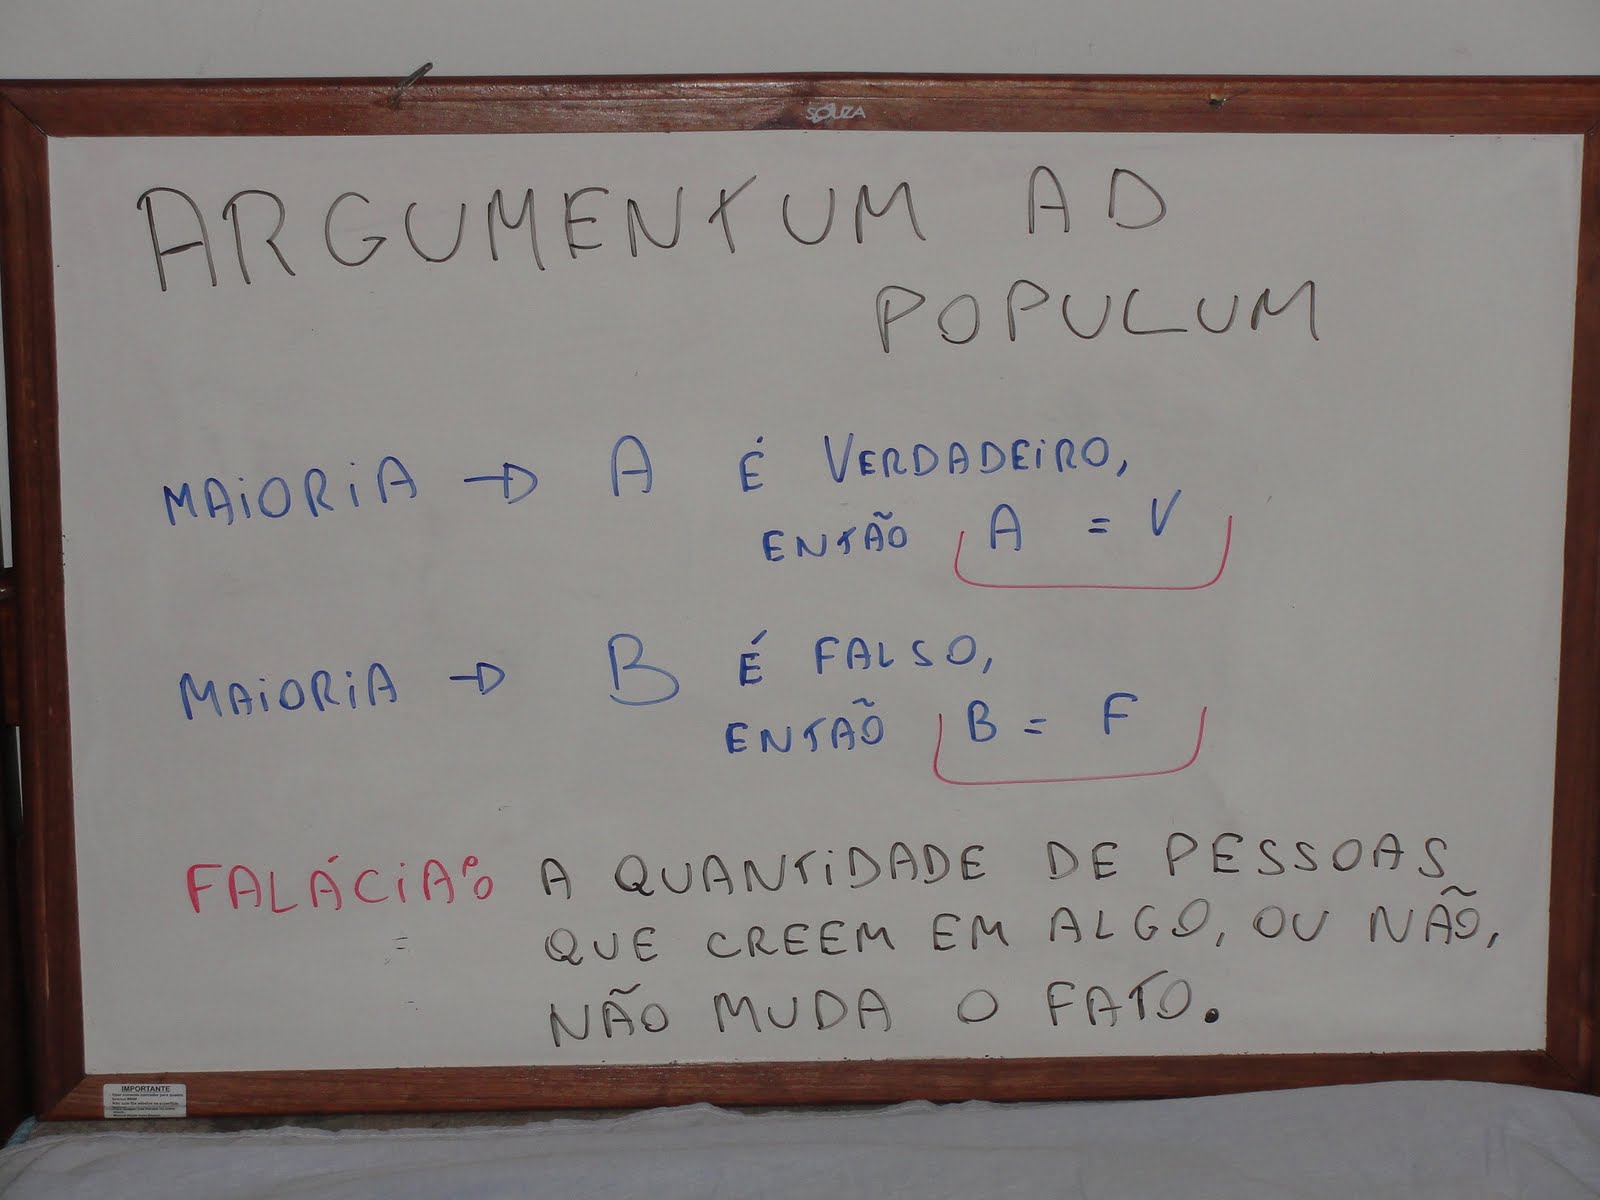 SOUZA
ARGUMENTUM AD
POPULUM
MAIORIA → A É VERDADEIRO,
ENTÃO A = V
MAIORIA → B É FALSO,
ENTÃO B = F
FALÁCIA: A QUANTIDADE DE PESSOAS
QUE CREEM EM ALGO, OU NÃO,
NÃO MUDA O FATO.
IMPORTANTE